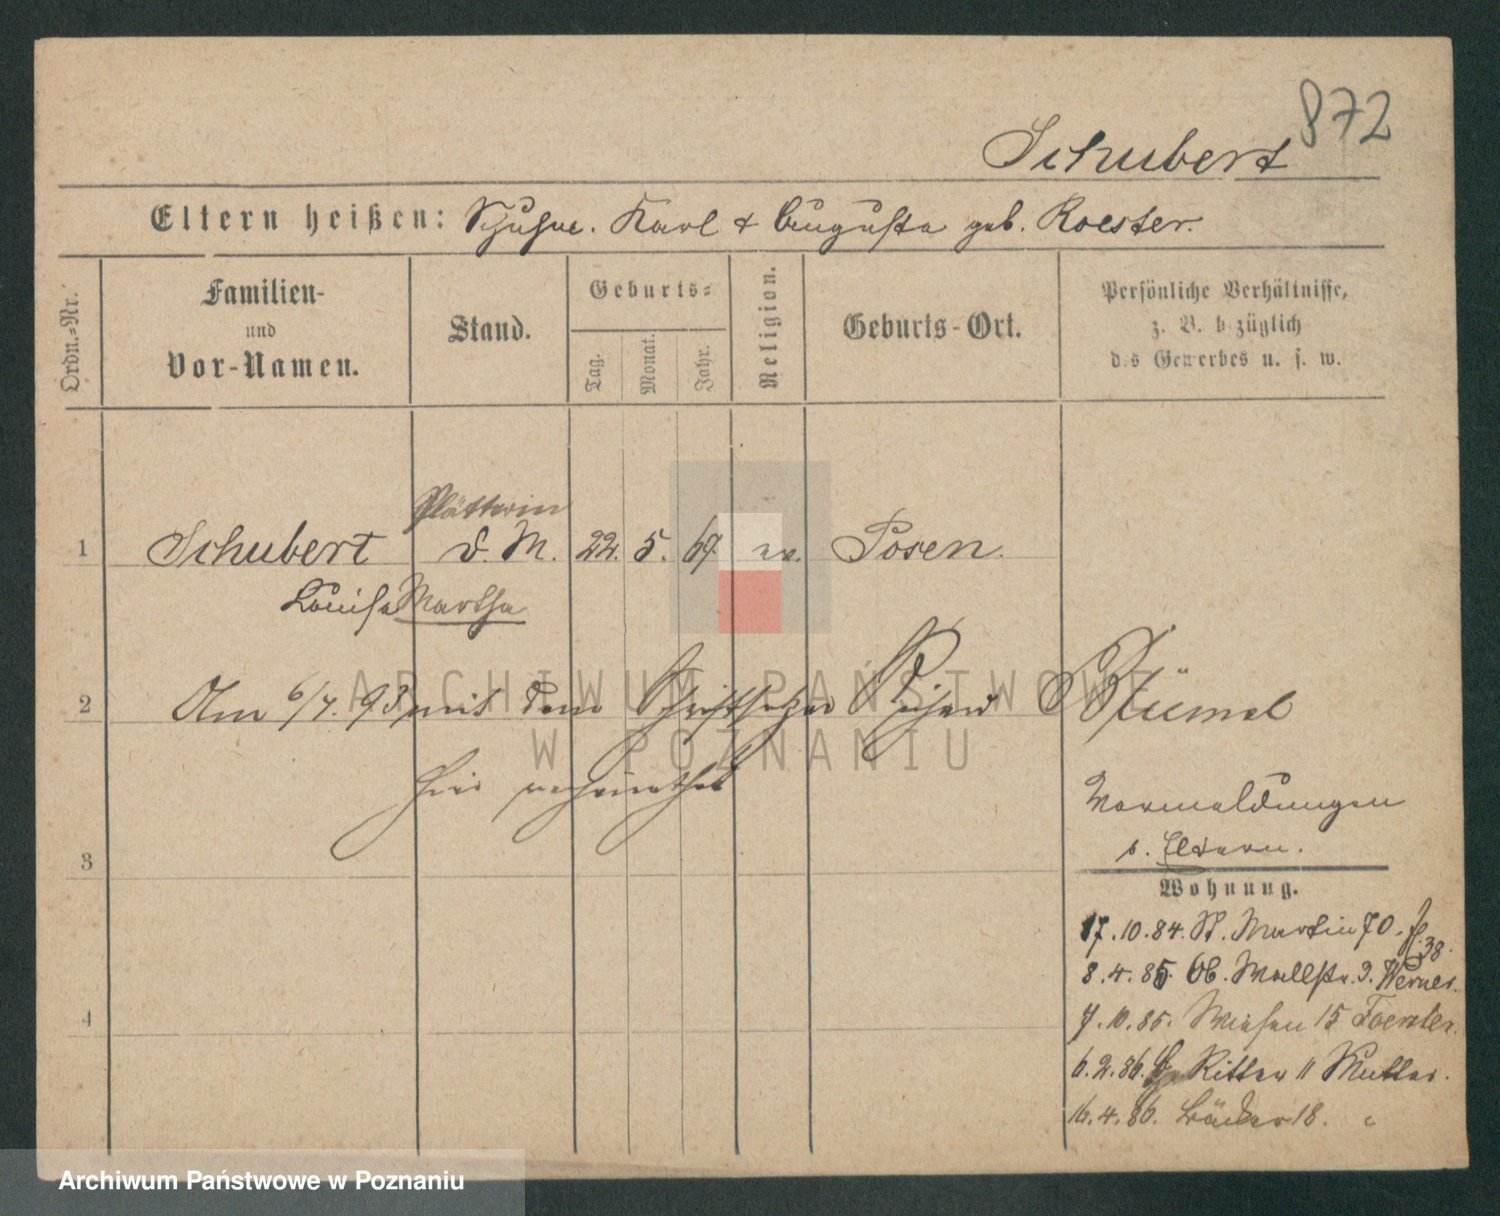 872
Schubert
Eltern heißen: Karl & Augusta geb. Roester.
Ordn.-Nr.
Familien-
und
Vor-Namen.
Stand.
Geburts-
Tag.
Monat.
Jahr.
Religion.
Geburts-Ort.
Persönliche Verhältnisse,
z. B. bezüglich
des Gewerbes u. s. w.
Plätterin
1 Schubert d. M. 22. 5. 67 ev. Posen.
Louise Martha
2 Am 6/7. 93 mit dem Schriftsetzer Richard Blümel
hier verheirathet
Vormeldungen
s. Eltern.
3
Wohnung.
17.10.84. St. Martin 70. 38.
8.4.85. Ob. Wallstr. 9. Werner.
4
7.10.85. Wiesen 15 Foerster.
6.2.86. Ritter 11 Mutter.
16.4.86. Bäcker 18. "
ARCHIWUM PAŃSTWOWE
W POZNANIU
Archiwum Państwowe w Poznaniu